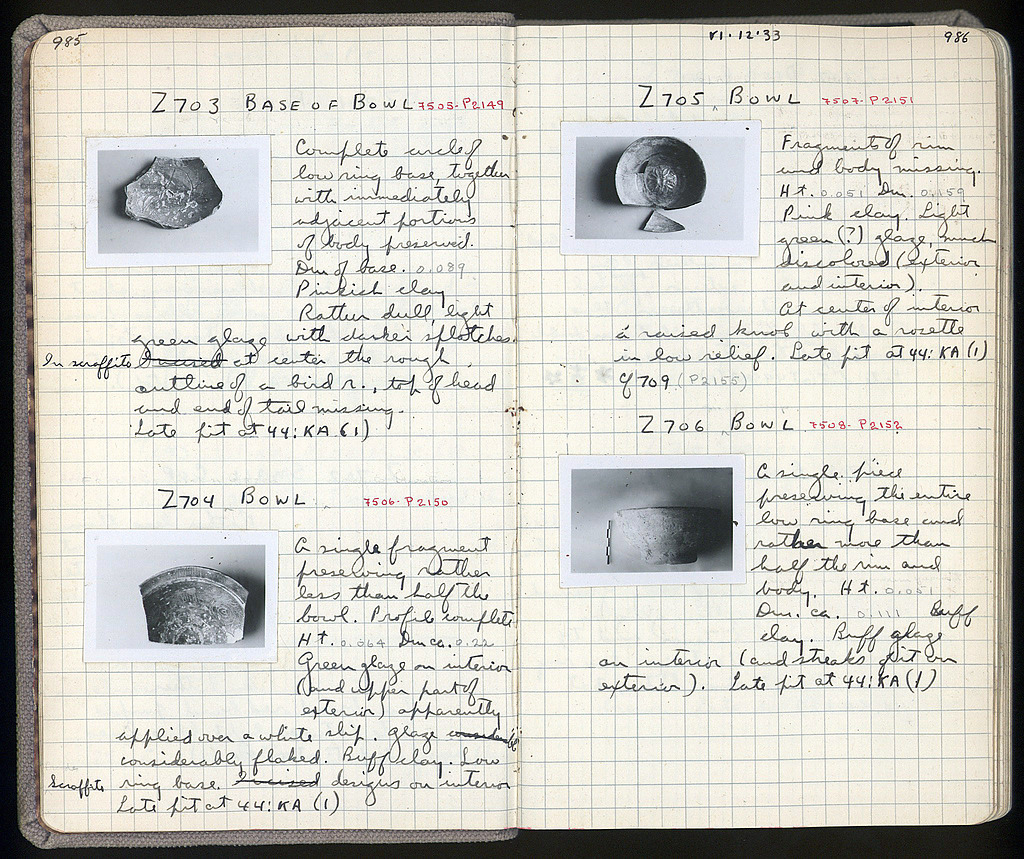 985
Z703 BASE OF BOWL 7505-P2149
Complete circle of
low ring base, together
with immediately
adjacent portions
of body preserved.
Dm of base. 0.089
Pinkish clay
Rather dull, light
green glaze with darker splotches.
In scraffito Incised at center the rough
outline of a bird r., top of head
and end of tail missing.
Late pit at 44:KA (1)
Z704 BOWL 7506-P2150
A single fragment
preserving rather
less than half the
bowl. Profile complete
Ht. 0.064 Dm ca. 0.22
Green glaze on interior
(and upper part of
exterior) apparently
applied over a white slip. Glaze
considerably flaked. Buff clay. Low
Scraffito ring base. Incised designs on interior
Late pit at 44:KA (1)
VI·12·33
986
Z705 BOWL 7507-P2151
Fragments of rim
and body missing.
Ht. 0.051 Dm. 0.159
Pink clay. Light
green (?) glaze, much
discolored (exterior
and interior).
At center of interior
a raised knob with a rosette
in low relief. Late pit at 44:KA (1)
Cf 709 (P2155)
Z706 BOWL 7508-P2152
A single piece
preserving the entire
low ring base and
rather more than
half the rim and
body. Ht. 0.051
Dm. ca. 0.111 Buff
clay. Buff glaze
on interior (and streaks of it on
exterior). Late pit at 44:KA (1)